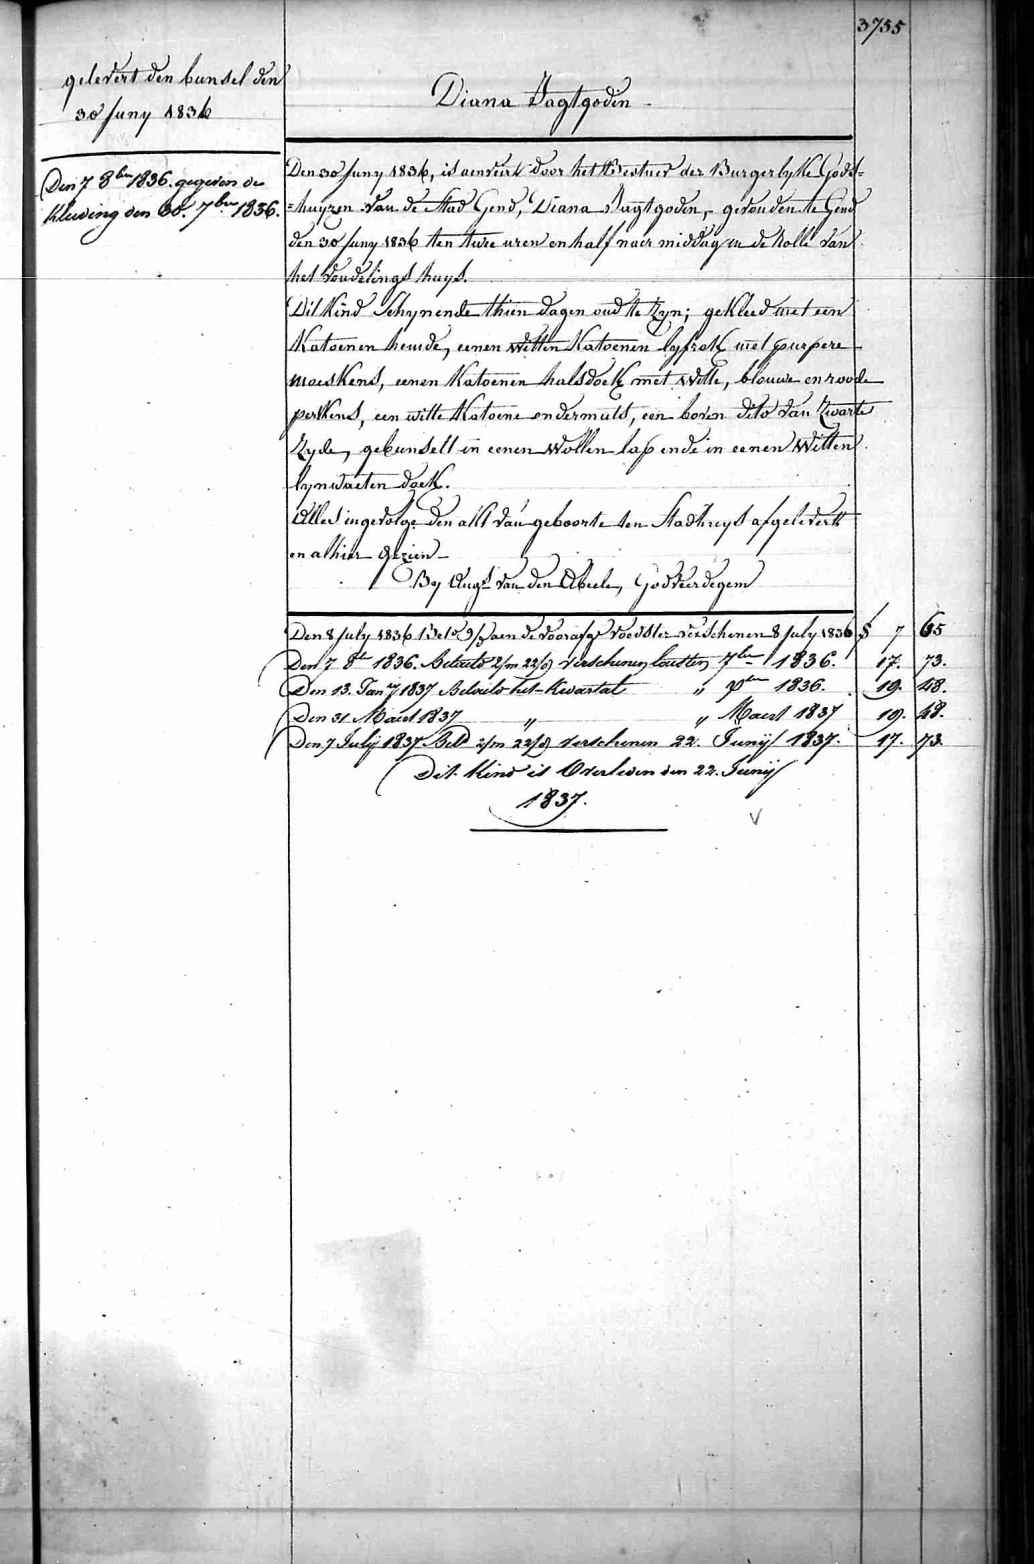 3755
gelevert den bunsel den
30 Juny 1836
Den 7 8ber 1836. gegeven de
kleeding den 30. 7ber 1836.
Diana Jagtgodin
Den 30 Juny 1836, is aenveirt door het Bestuer der Burgerlyke Gods=
=huyzen van de Stad Gend, Diana Jagtgodin, gevonden te Gend
den 30 Juny 1836 ten twee uren en half naer middag in de rolle van
het vondelings huys.
Dit kind schynende thien dagen oud te zyn; gekleed met een
katoenen hemde, eenen witten katoenen lyfrok met purpere
moeskens, eenen katoenen halsdoek met witte, blouwe en roode
perkens, een witte katoene ondermuts, een boven dito van zwarte
zyde, gebunselt in eenen wollen lap ende in eenen witten
lynwaeten doek.
Alles ingevolge den akt van geboorte ten Stadhuys afgelevert
en alhier gezien
By Augt van den Abeele, Godveerdegem
Den 8 July 1836 aen de voorafge voedster verschenen 8 July 1836 7 65
Den 7 8br 1836. Betaeld 2/m 22/d verschenen lausten 7ber 1836. 17. 73.
Den 13. Jany 1837 Betaeld het kwartal " Xber 1836. 19. 48.
Den 31 Maert 1837 " " Maert 1837 19. 48.
Den 7 Julij 1837 Betd 2/m 22/d verschenen 22. Junij 1837. 17. 73.
Dit kind is Overleden den 22. Junij
1837.